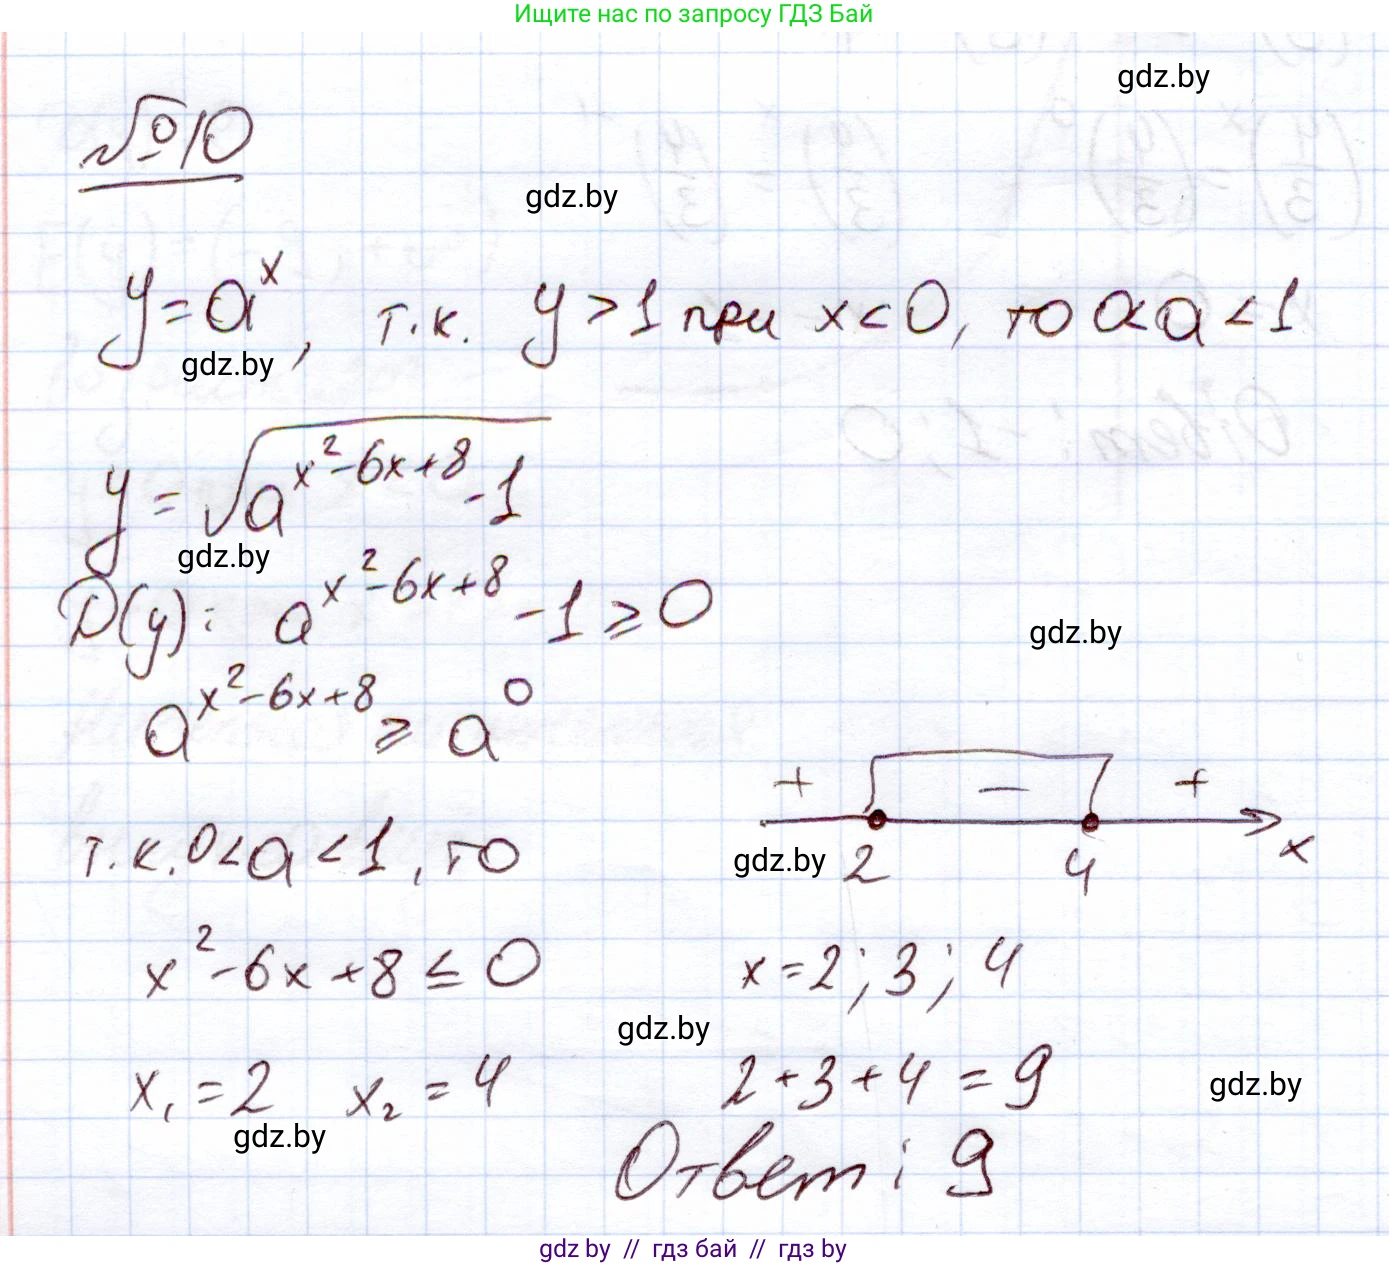 Ищите нас по запросу ГДЗ Бай
gdz.by
№10
gdz.by
y = a^x, т.к. y > 1 при x < 0, то 0 < a < 1
gdz.by
y = √(a^(x²-6x+8) - 1)
gdz.by
D(y): a^(x²-6x+8) - 1 ≥ 0
gdz.by
a^(x²-6x+8) ≥ a^0
+ − +
gdz.by
2 4 x
т.к. 0 < a < 1, то
x² - 6x + 8 ≤ 0
x = 2; 3; 4
gdz.by
x₁ = 2 x₂ = 4
2 + 3 + 4 = 9
gdz.by
gdz.by
Ответ: 9
gdz by // гдз бай // гдз by